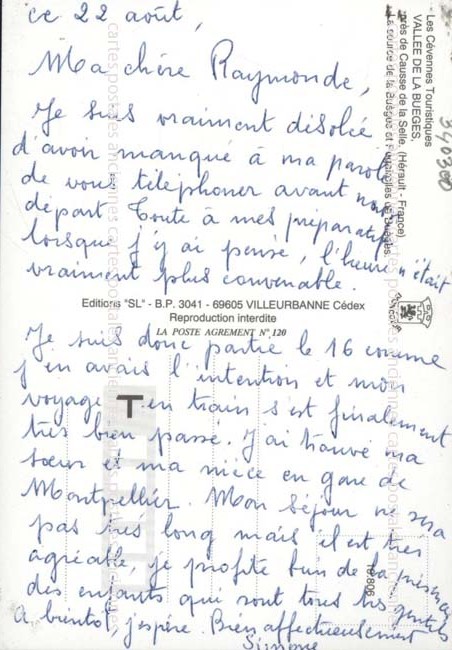 ce 22 août,
Ma chère Raymonde,
Je suis vraiment désolée
d'avoir manqué à ma parole
de vous téléphoner avant mon
départ Toute à mes préparatifs
lorsque j'y ai pensé, l'heure n'était
vraiment plus convenable.
Editions "SL" - B.P. 3041 - 69605 VILLEURBANNE Cédex
Reproduction interdite
LA POSTE AGREMENT N° 120
Je suis donc partie le 16 comme
j'en avais l'intention et mon
voyage en train s'est finalement
très bien passé. J'ai trouvé ma
sœur et ma nièce en gare de
Montpellier. Mon séjour ne sera
pas très long mais il est très
agréable, je profite bien de la présence
des enfants qui sont tous très gentils
A bientôt, j'espère. Bien affectueusement
Simone
T
Les Cévennes Touristiques
VALLEE DE LA BUEGES,
près de Causse de la Selle. (Hérault - France)
La source de la Buèges et
340300
18.806